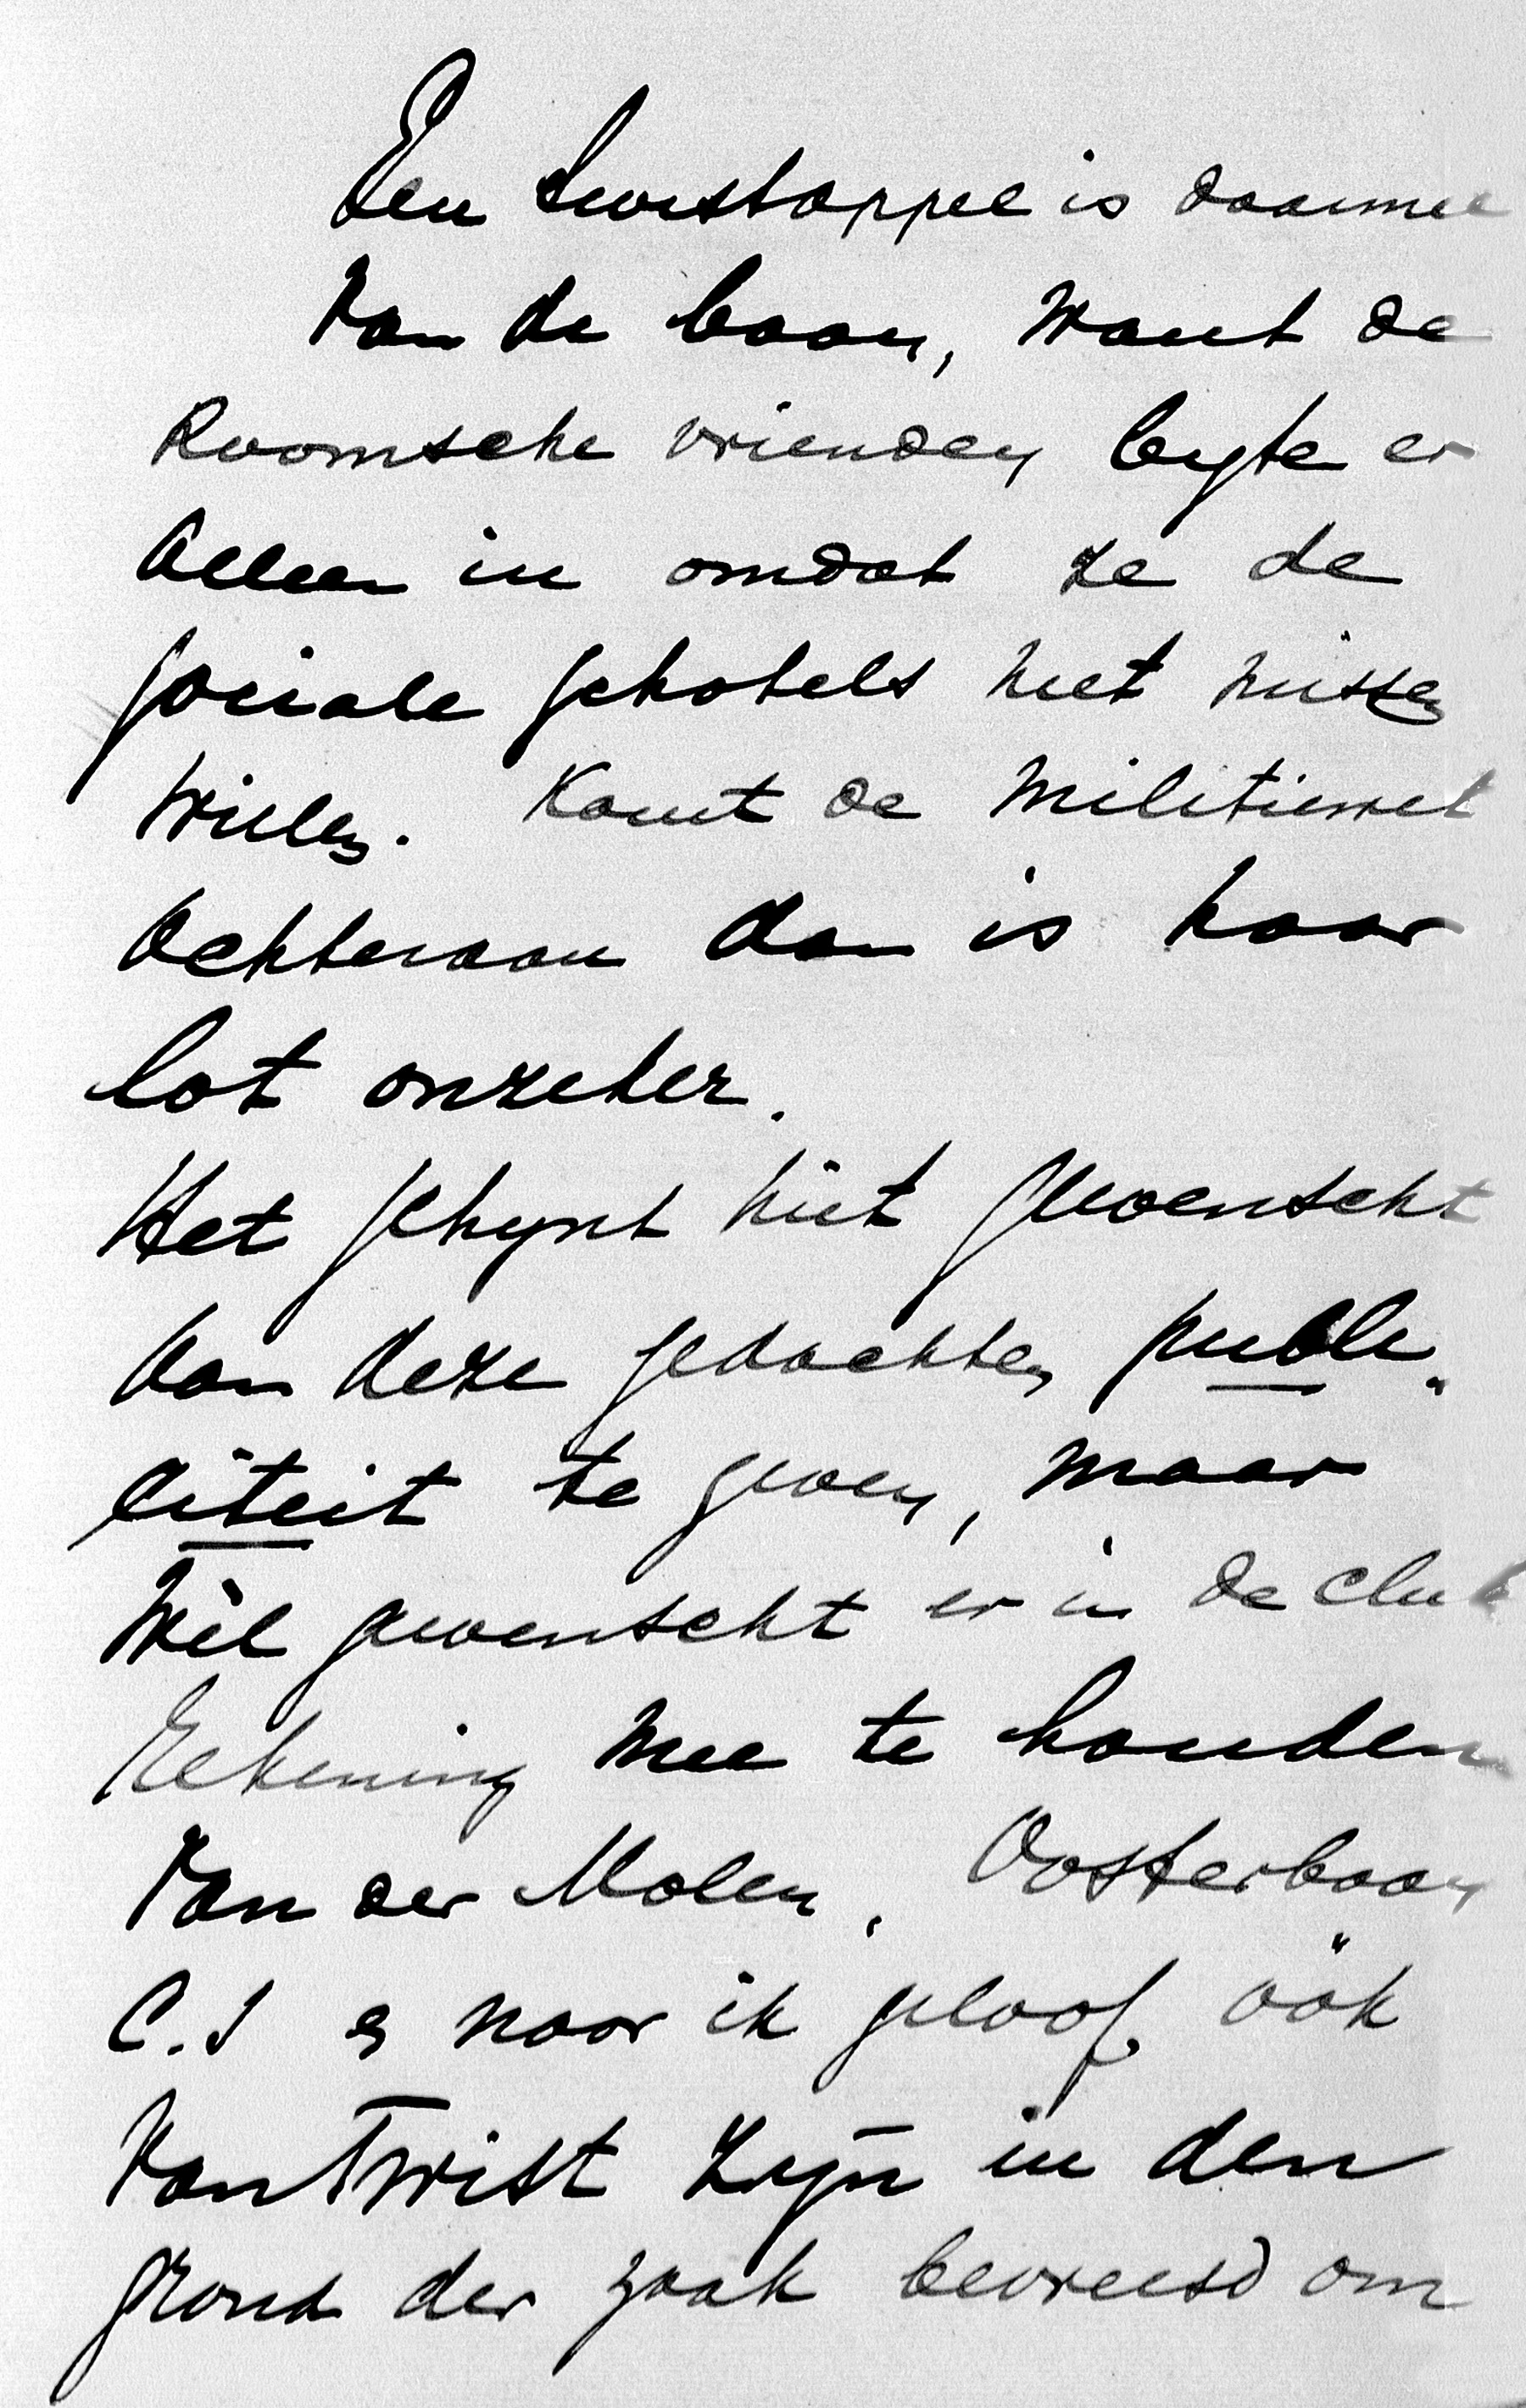 Een twistappel is daarmee
van de baan, want de
Roomsche vrienden byte er
alleen in omdat ze de
sociale schakels niet missen
willen. Komt de militiewet
achteraan dan is haar
lot onzeker.
Het schynt niet gewenscht
aan deze gedachten publi-
citeit te geven, maar
wèl gewenscht er in de club
rekening mee te houden
Van der Molen, Oosterbaan
C.S en naar ik geloof óók
Van Twist zyn in den
grond der zaak bevreesd om